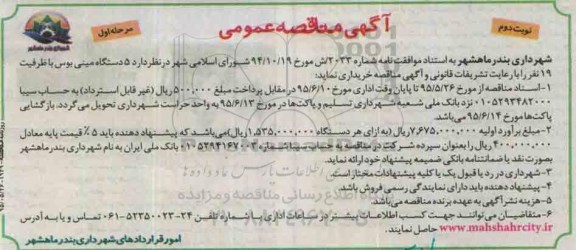 آگهی مناقصه عمومی
نوبت دوم
مرحله اول
شهرداری بندر ماهشهر
شهرداری بندرماهشهر به استناد موافقت نامه شماره ۲۰۳۳/ش مورخ ۹۴/۱۰/۱۹ شورای اسلامی شهر درنظر دارد ۵ دستگاه مینی بوس با ظرفیت
۱۹ نفر را با رعایت تشریفات قانونی و آگهی مناقصه خریداری نماید:
۱-اسناد مناقصه از مورخ ۹۵/۵/۲۶ تا پایان وقت اداری مورخ ۹۵/۶/۱۰ در مقابل پرداخت مبلغ ۵۰۰,۰۰۰ ریال (غیر قابل استرداد) به حساب سیبا
۰۱۰۵۲۹۳۴۸۲۰۰۰ نزد بانک ملی شعبه شهرداری تسلیم و پاکت‌ها در مورخ ۹۵/۶/۱۳ به واحد حراست شهرداری تحویل می‌گردد. بازگشایی
پاکت‌ها مورخ ۹۵/۶/۱۴ می‌باشد.
۲-مبلغ برآورد اولیه ۷,۶۷۵,۰۰۰,۰۰۰ ریال (به ازای هر دستگاه ۱,۵۳۵,۰۰۰,۰۰۰ ریال) می‌باشد که پیشنهاد دهنده باید ۵٪ قیمت پایه معادل
۴۰۰,۰۰۰,۰۰۰ ریال را بعنوان سپرده شرکت در مناقصه به حساب سیبا شماره ۰۱۰۵۲۹۴۱۶۷۰۰۳ بانک ملی ایران به نام شهرداری بندرماهشهر
بصورت نقد یا ضمانتنامه بانکی ضمیمه پیشنهاد خود ارائه نماید.
۳-شهرداری در رد یا قبول یک یا کلیه پیشنهادات مختار است.
۴-پیشنهاد دهنده باید دارای نمایندگی رسمی فروش باشد.
۵-هزینه نشر آگهی به عهده برنده مناقصه می‌باشد.
۶-متقاضیان می‌توانند جهت کسب اطلاعات بیشتر در ساعات اداری با شماره تلفن ۲۴-۵۲۳۵۰۰۲۳-۰۶۱ تماس و یا به آدرس
www.mahshahrcity.ir حاصل نمایند.
امور قراردادهای شهرداری بندرماهشهر